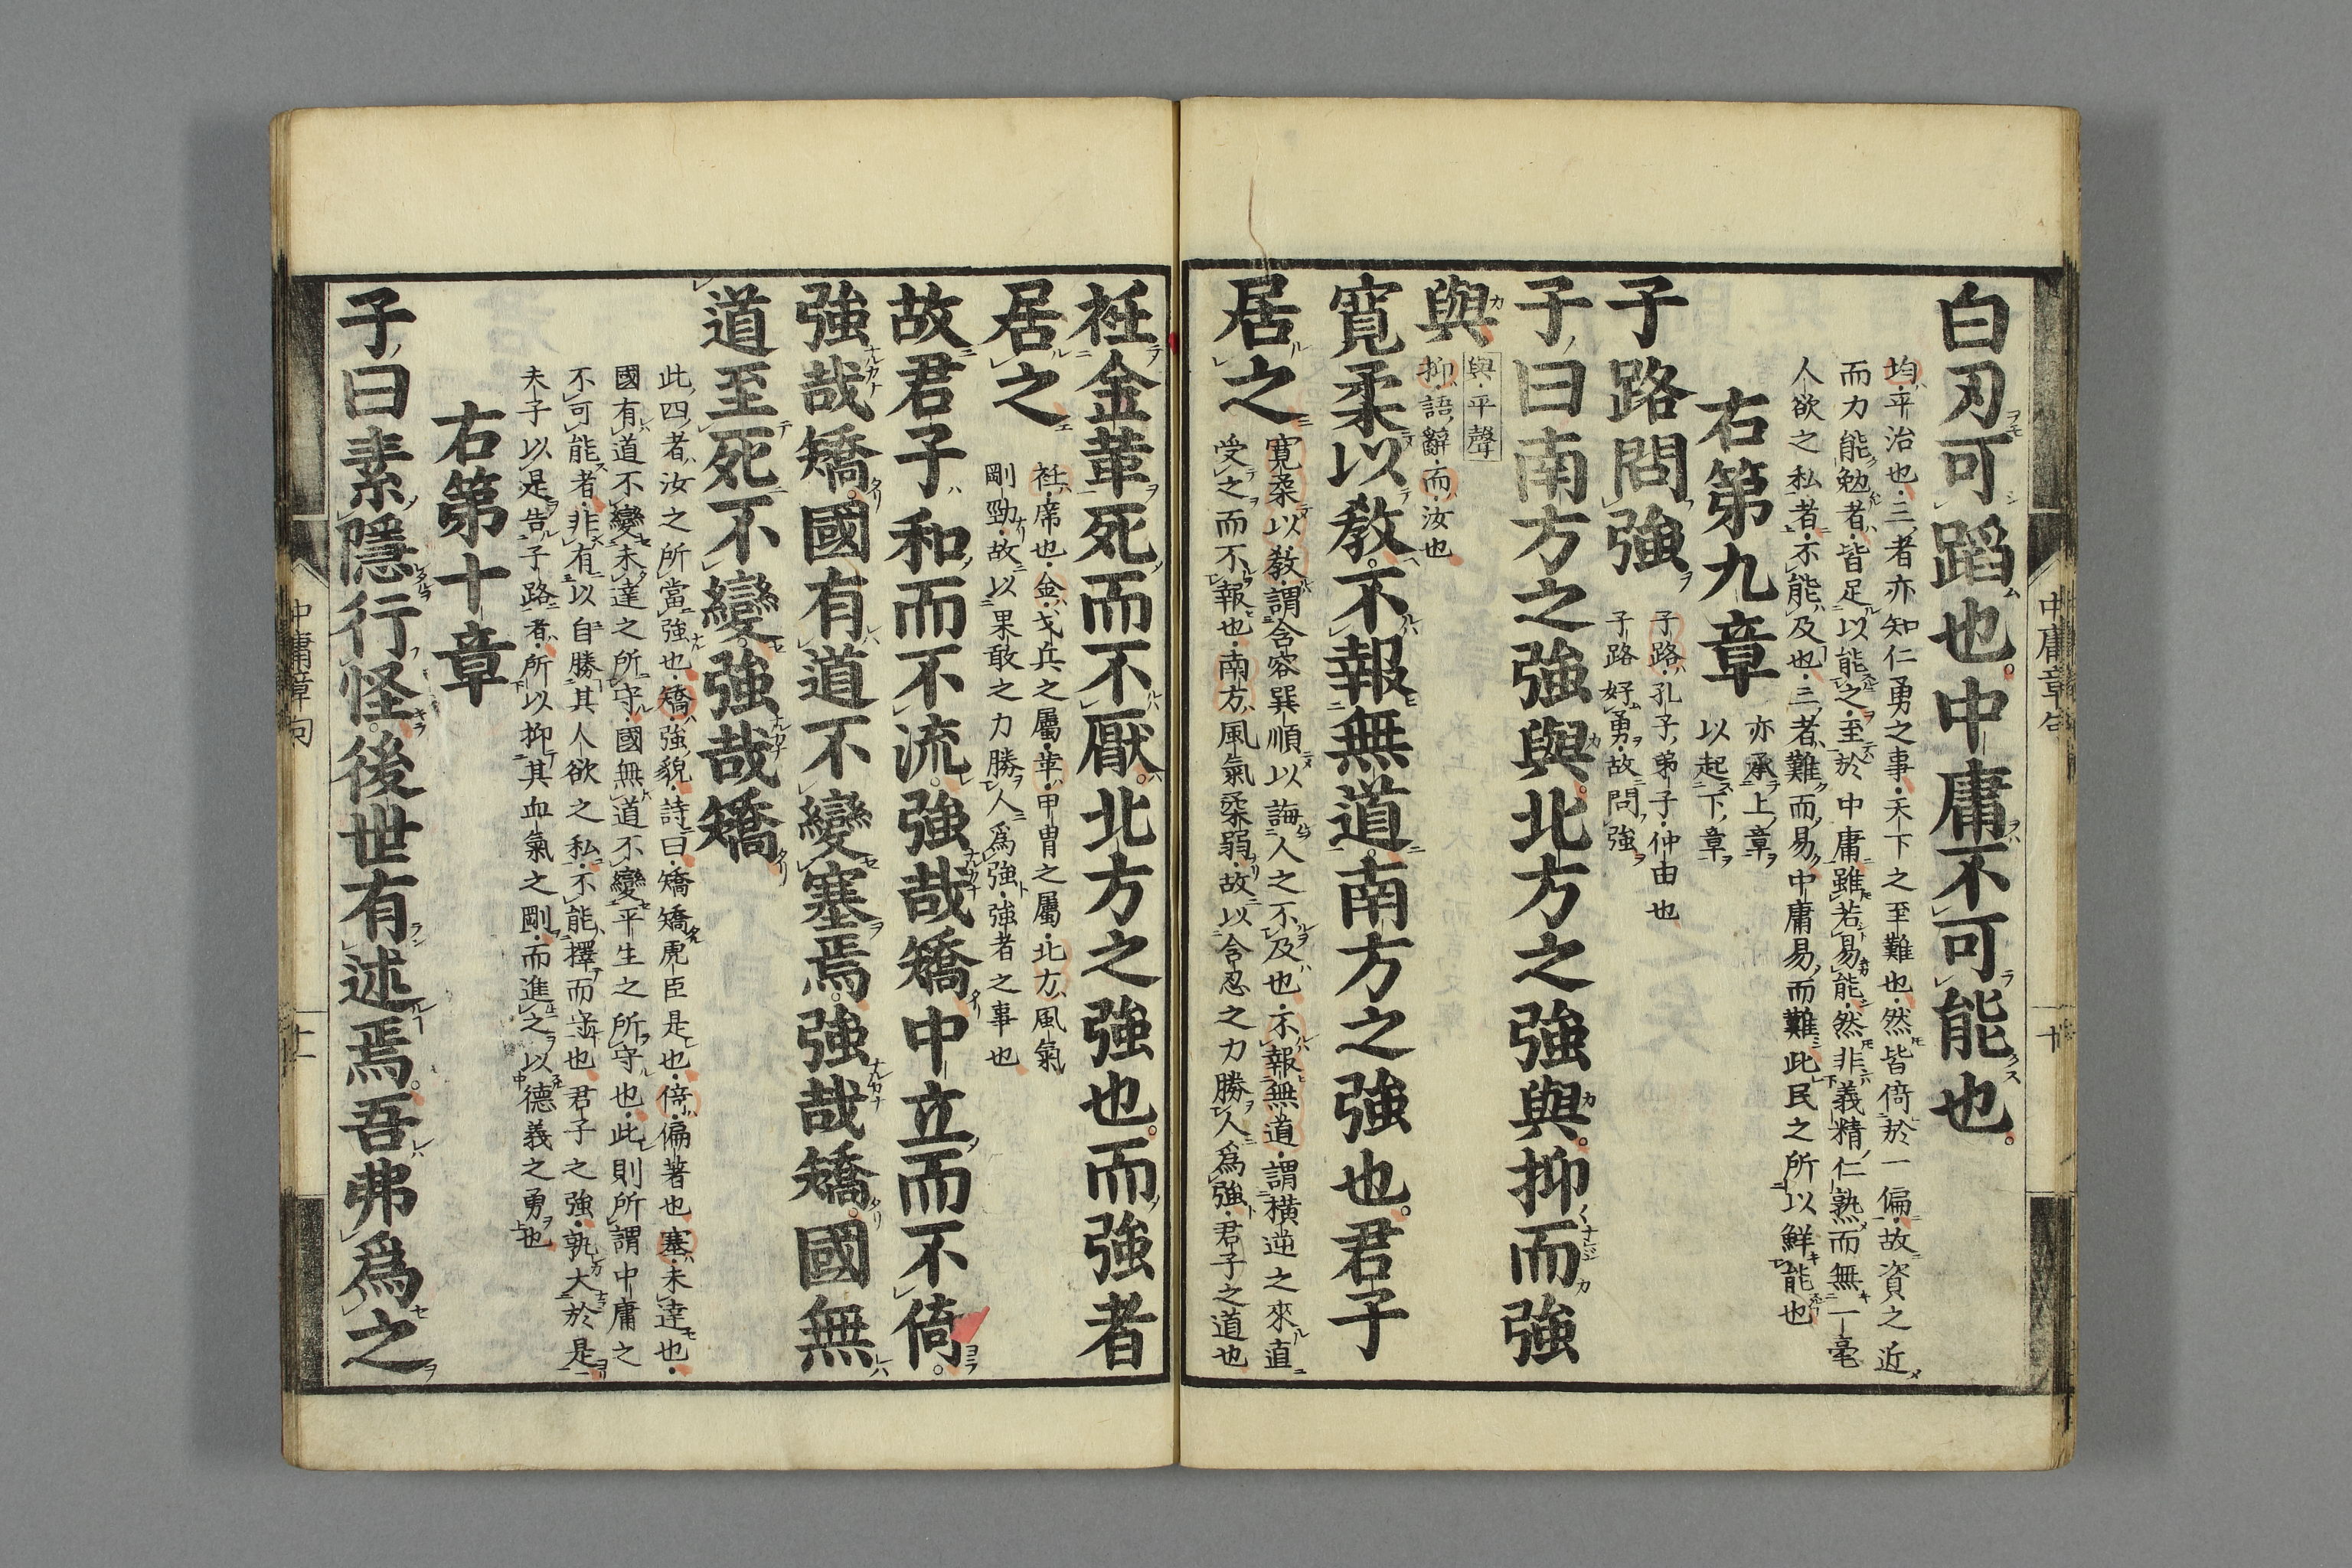 白刃可蹈也。中庸不可能也。
均平治也三者亦知仁勇之事天下之至難也然皆倚於一偏故資之近
而力能勉者皆足以能之至於中庸雖若易能然非義精仁熟而無一毫
人欲之私者不能及也三者難而易中庸易而難此民之所以鮮能也
右第九章
亦承上章
以起下章
子路問強
子路孔子弟子仲由也
子路好勇故問強
子曰南方之強與。北方之強與。抑而強
與
與平聲
抑語辭而汝也
寬柔以敎。不報無道南方之強也。君子
居之
寬柔以敎謂含容巽順以誨人之不及也不報無道謂橫逆之來直
受之而不報也南方風氣柔弱故以含忍之力勝人爲強君子之道也
中庸章句
十
衽金革死而不厭。北方之強也。而強者
居之
衽席也金戈兵之屬革甲冑之屬北方風氣
剛勁故以果敢之力勝人爲強強者之事也
故君子和而不流。強哉矯中立而不倚。
強哉矯。國有道不變塞焉。強哉矯。國無
道至死不變。強哉矯
此四者汝之所當強也矯強貌詩曰矯矯虎臣是也倚偏著也塞未達也
國有道不變未達之所守國無道不變平生之所守也此則所謂中庸之
不可能者非有以自勝其人欲之私不能擇而守也君子之強孰大於是
夫子以是告子路者所以抑其血氣之剛而進之以德義之勇也
右第十章
子曰素隱行怪。後世有述焉。吾弗爲之
中庸章句
十一